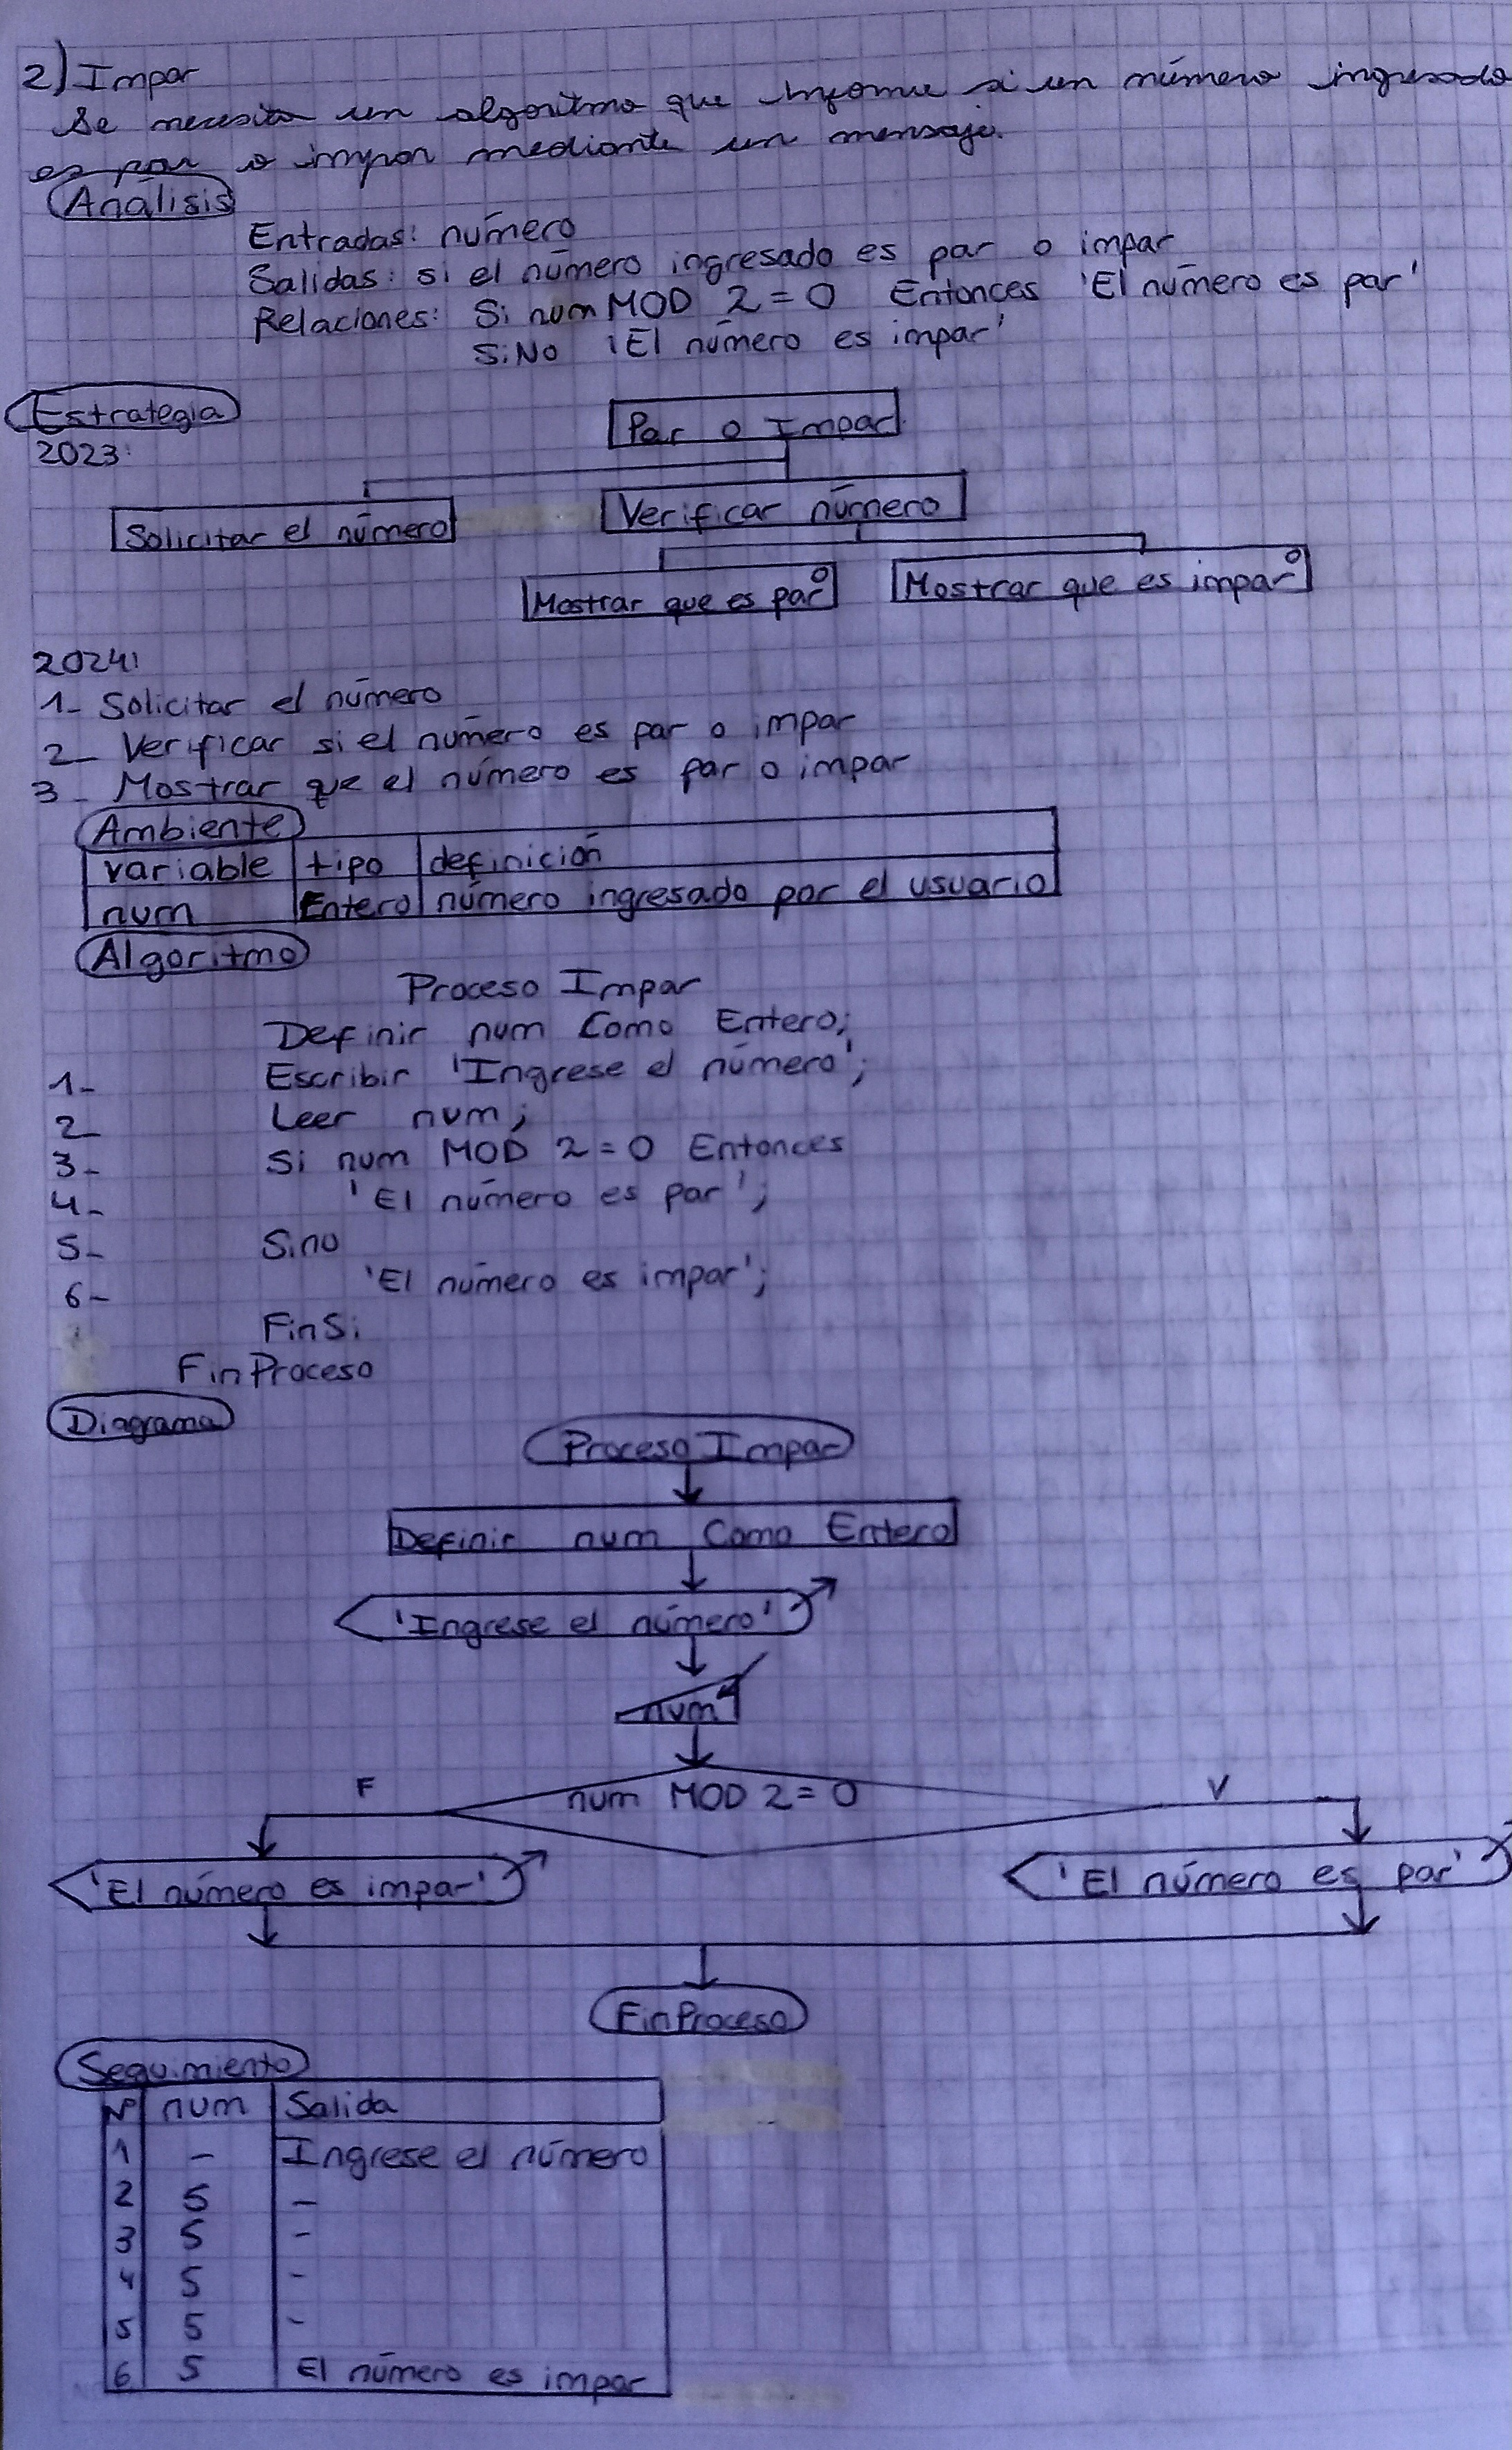 2) Impar
Se necesita un algoritmo que informe si un número ingresado
es par o impar mediante un mensaje.
Análisis
Entradas: número
Salidas: si el número ingresado es par o impar
Relaciones: Si num MOD 2 = 0 Entonces 'El número es par'
SiNo 'El número es impar'
Estrategia
2023:
Par o Impar
Solicitar el número
Verificar número
Mostrar que es par o
Mostrar que es impar o
2024:
1- Solicitar el número
2- Verificar si el número es par o impar
3- Mostrar que el número es par o impar
Ambiente
variable tipo definición
num Entero número ingresado por el usuario
Algoritmo
Proceso Impar
Definir num Como Entero;
1- Escribir 'Ingrese el número';
2- Leer num;
3- Si num MOD 2 = 0 Entonces
4- 'El número es par';
5- Sino
6- 'El número es impar';
FinSi
FinProceso
Diagrama
Proceso Impar
Definir num Como Entero
'Ingrese el número'
num
num MOD 2 = 0
F
V
'El número es impar'
'El número es par'
FinProceso
Seguimiento
Nº num Salida
1 - Ingrese el número
2 5 -
3 5 -
4 5 -
5 5 -
6 5 El número es impar